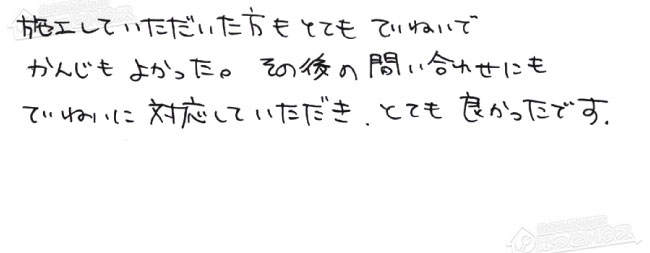 施工していただいた方もとても ていねいで
かんじも よかった。その後の問い合わせにも
ていねいに 対応していただき、とても 良かったです.